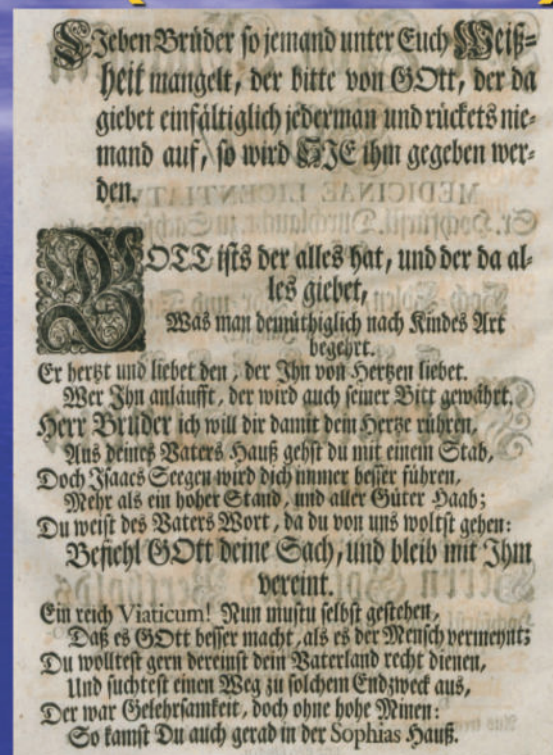 LIeben Brüder so jemand unter Euch Weiß=
heit mangelt, der bitte von GOtt, der da
giebet einfältiglich jederman und rückets nie=
mand auf, so wird SIE ihm gegeben wer=
den.
MEDICINAE LICENTIAT
GOTT ists der alles hat, und der da al=
les giebet,
Was man demüthiglich nach Kindes Art
begehrt.
Er hertzt und liebet den, der Ihn von Hertzen liebet.
Wer Ihn anläufft, der wird auch seiner Bitt gewährt.
Herr Brüder ich will dir damit dein Hertze rühren,
Aus deines Vaters Hauß gehst du mit einem Stab,
Doch Isaacs Seegen wird dich immer besser führen,
Mehr als ein hoher Stand, und aller Güter Haab;
Du weist des Vaters Wort, da du von uns woltst gehen:
Befiehl GOtt deine Sach, und bleib mit Ihm
vereint.
Ein reich Viaticum! Nun mustu selbst gestehen,
Daß es GOtt besser macht, als es der Mensch vermeynt;
Du wolltest gern dereinst dein Vaterland recht dienen,
Und suchtest einen Weg zu solchem Endzweck aus,
Der war Gelehrsamkeit, doch ohne hohe Minen:
So kamst Du auch gerad in der Sophias Hauß.